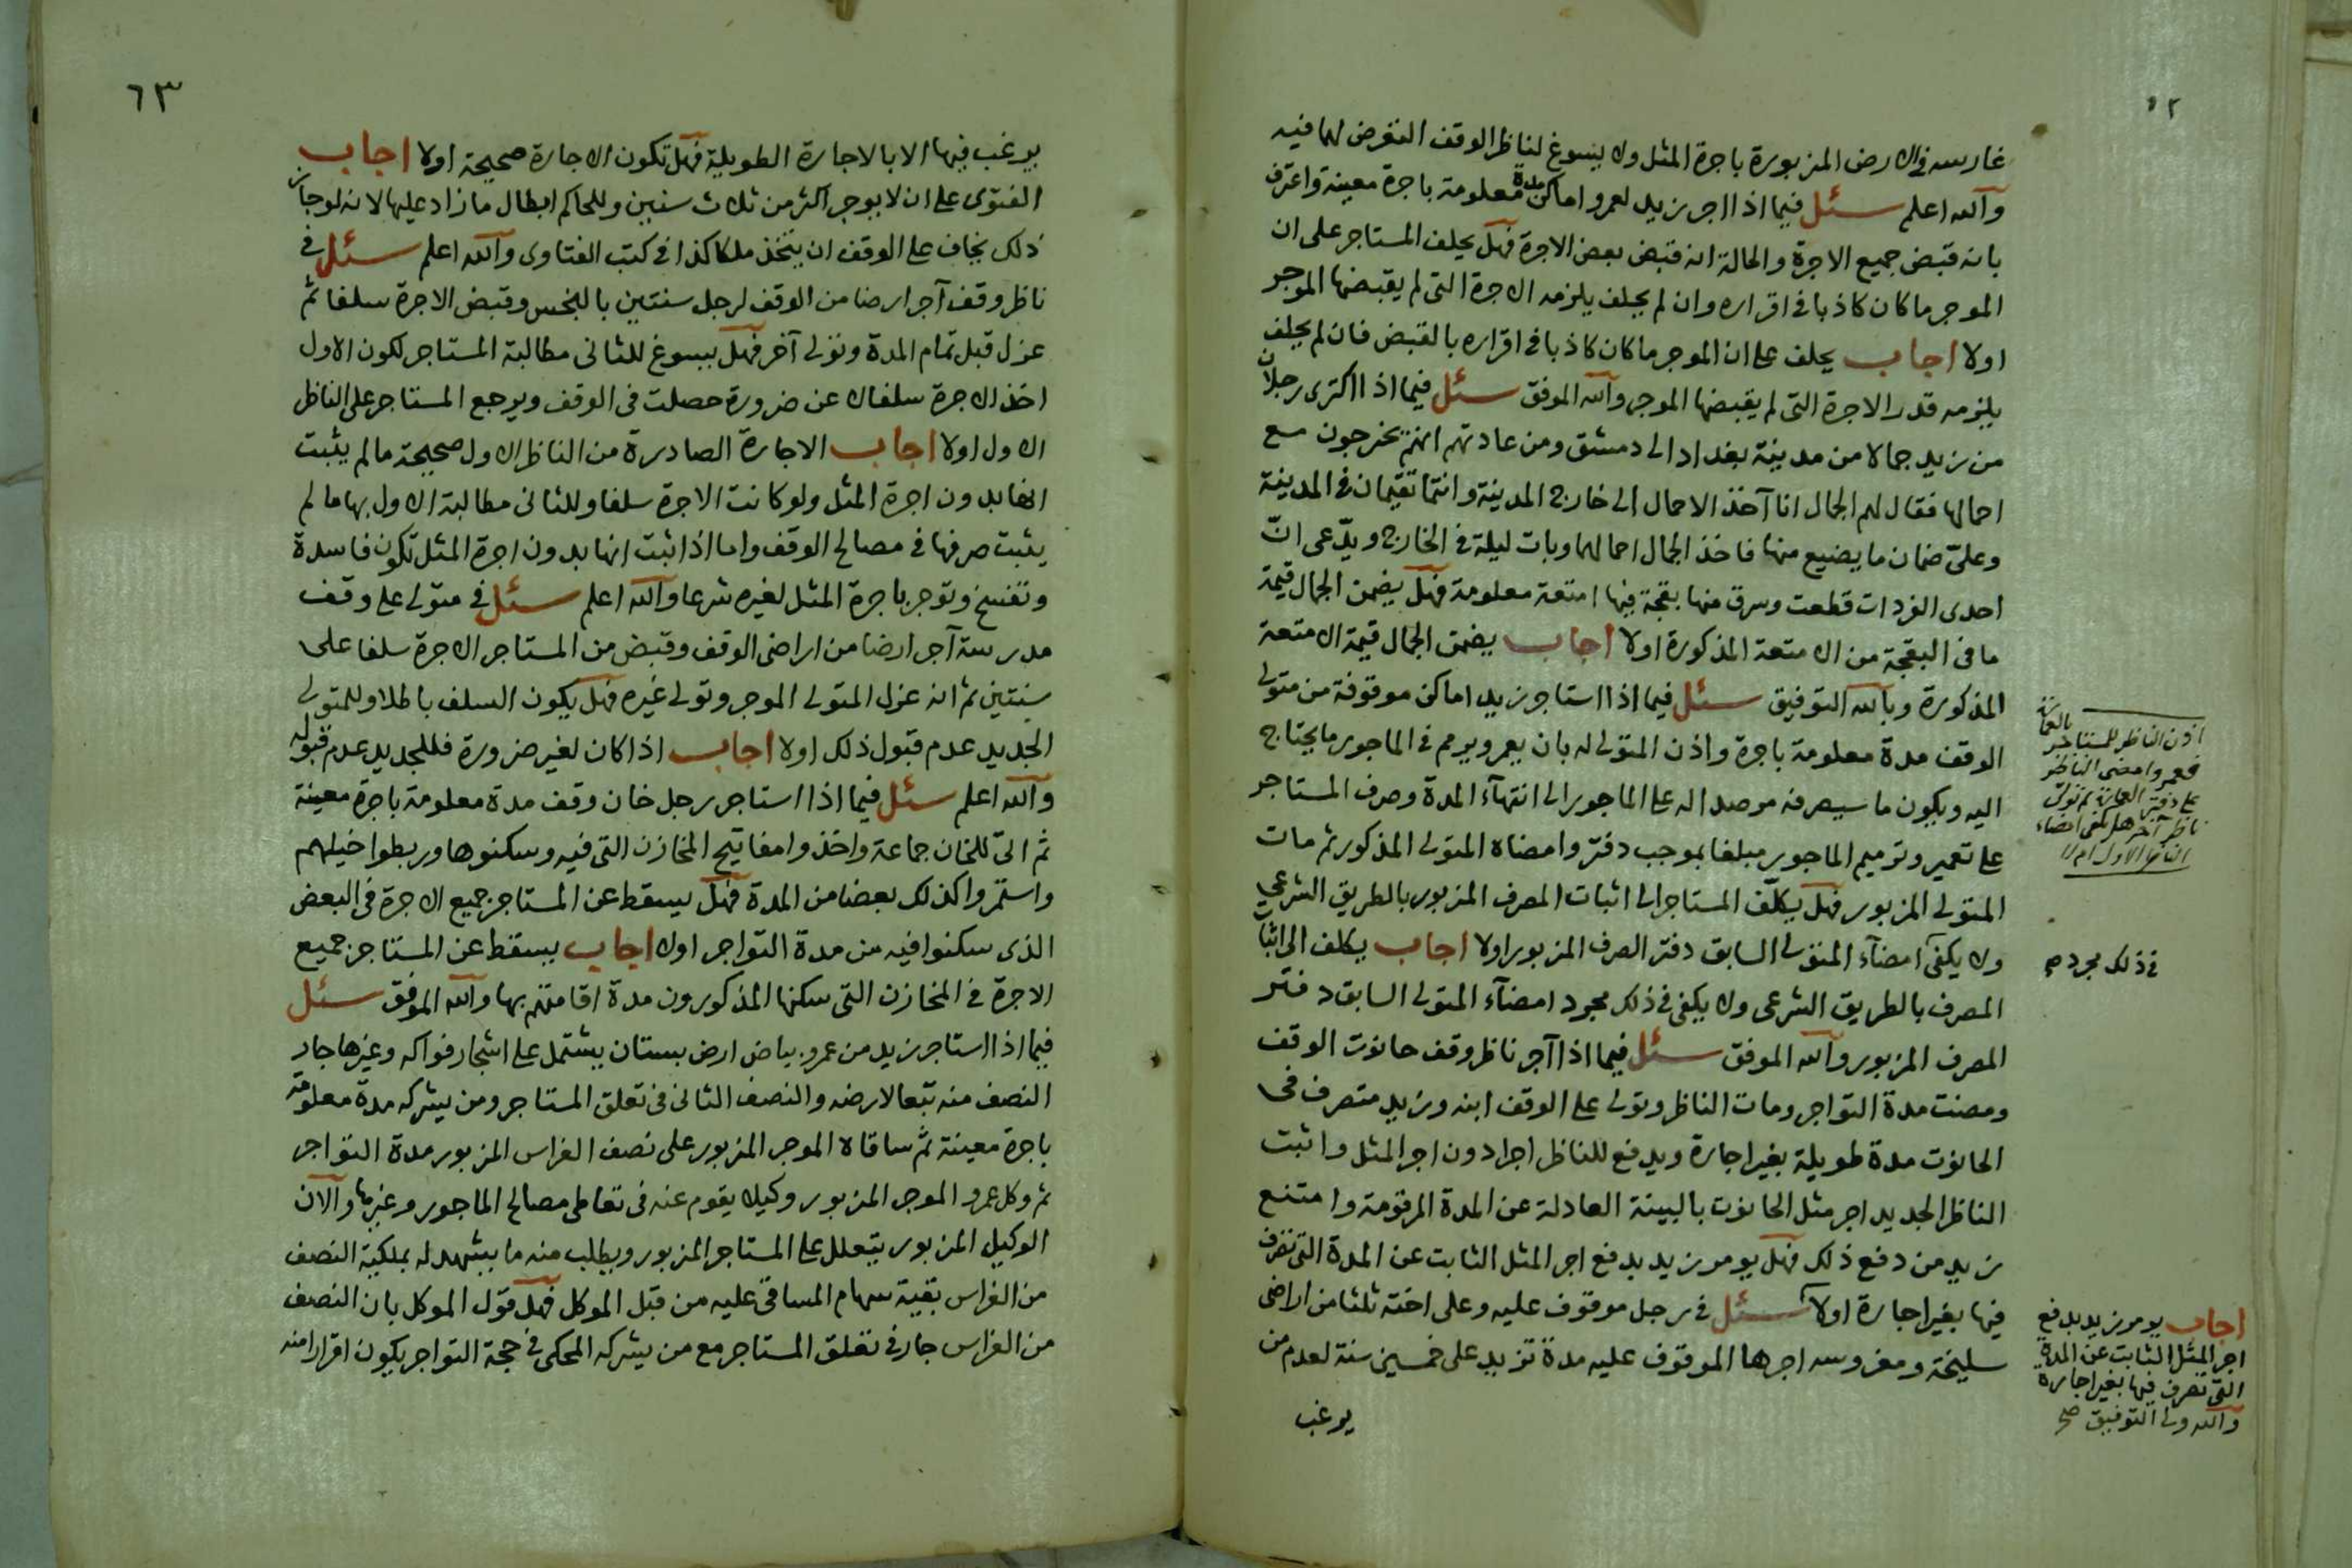 غارسه فى الارض المزبورة باجرة المثل ولا يسوغ لناظر الوقف التعرض لهما فيه
والله اعلم سئل فيما اذا اجر زيد لعمرو اماكن مدة معلومة باجرة معينة واعترف
بانه قبض جميع الاجرة والحالة انه قبض بعض الاجرة فهل يحلف المستاجر على ان
الموجر ما كان كاذبا فى اقراره وان لم يحلف يلزمه الاجرة التى لم يقبضها الموجر
اولا اجاب يحلف على ان الموجر ما كان كاذبا فى اقراره بالقبض فان لم يحلف
يلزمه قدر الاجرة التى لم يقبضها الموجر والله الموفق سئل فيما اذا اكترى رجلان
من زيد جمالا من مدينة بغداد الى دمشق ومن عادتهم انهم يخرجون مع
احمالها فقال لهم الجمال انا آخذ الاحمال الى خارج المدينة وانتما تقيمان فى المدينة
وعلىّ ضمان ما يضيع منها فاخذ الجمال احمالهما وبات ليلة فى الخارج ويدّعى انّ
احدى الفردات قطعت وسرق منها بقجة فيها امتعة معلومة فهل يضمن الجمال قيمة
ما فى البقجة من الامتعة المذكورة اولا اجاب يضمن الجمال قيمة الامتعة
المذكورة وبالله التوفيق سئل فيما اذا استاجر زيد اماكن موقوفة من متولى
الوقف مدة معلومة باجرة واذن المتولى له بان يعمر ويرمم فى الماجور ما يحتاج
اليه ويكون ما سيصرفه مرصدا له على الماجور الى انتهآء المدة وصرف المستاجر
على تعمير وترميم الماجور مبلغا بموجب دفتر وامضاه المتولى المذكور ثم مات
المتولى المزبور فهل يكلّف المستاجر الى اثبات المصرف المزبور بالطريق الشرعى
ولا يكفى امضآء المتولى السابق دفتر الصرف المزبور اولا اجاب يكلف الى اثبات
المصرف بالطريق الشرعى ولا يكفى فى ذلك مجرد امضآء المتولى السابق دفتر
المصرف المزبور والله الموفق سئل فيما اذا آجر ناظر وقف حانوت الوقف
ومضت مدة التواجر ومات الناظر وتولى على الوقف ابنه وزيد متصرف فى
الحانوت مدة طويلة بغير اجارة ويدفع للناظر اجرا دون اجر المثل واثبت
الناظر الجديد اجر مثل الحانوت بالبينة العادلة عن المدة المرقومة وامتنع
زيد من دفع ذلك فهل يومر زيد بدفع اجر المثل الثابت عن المدة التى تصرف
فيها بغير اجارة اولا سئل فى رجل موقوف عليه وعلى اخته ثلثا من اراضى
سليخة ومغروسه اجرها الموقوف عليه مدة تزيد على خمسين سنة لعدم من
يرغب
اذن الناظر للمستاجر بالعمارة
فعمر وامضى الناظر
على دفتر العمارة ثم تولى
ناظر آخر هل يكفى امضاء
الناظر الاول ام لا
فى ذلك مجرد صح
اجاب يومر زيد بدفع
اجر المثل الثابت عن المدة
التى تصرف فيها بغير اجارة
والله ولى التوفيق صح
٦٣
يرغب فيها الا بالاجارة الطويلة فهل تكون الاجارة صحيحة اولا اجاب
الفتوى على ان لا يوجر اكثر من ثلاث سنين وللحاكم ابطال ما زاد عليها لانه لو جاز
ذلك يخاف على الوقف ان يتخذ ملكا كذا فى كتب الفتاوى والله اعلم سئل فى
ناظر وقف آجر ارضا من الوقف لرجل سنتين بالبخس وقبض الاجرة سلفا ثم
عزل قبل تمام المدة وتولى آخر فهل يسوغ للثانى مطالبة المستاجر لكون الاول
اخذ الاجرة سلفا لا عن ضرورة حصلت فى الوقف ويرجع المستاجر على الناظر
الاول اولا اجاب الاجارة الصادرة من الناظر الاول صحيحة ما لم يثبت
انها بدون اجرة المثل ولو كانت الاجرة سلفا وللثانى مطالبة الاول بها ما لم
يثبت صرفها فى مصالح الوقف واما اذا ثبت انها بدون اجرة المثل تكون فاسدة
وتفسخ وتوجر باجرة المثل لغيره شرعا والله اعلم سئل فى متولى على وقف
مدرسة آجر ارضا من اراضى الوقف وقبض من المستاجر الاجرة سلفا على
سنتين ثم انه عزل المتولى الموجر وتولى غيره فهل يكون السلف باطلا وللمتولى
الجديد عدم قبول ذلك اولا اجاب اذا كان لغير ضرورة فللجديد عدم قبوله
والله اعلم سئل فيما اذا استاجر رجل خان وقف مدة معلومة باجرة معينة
ثم اتى للخان جماعة واخذوا مفاتيح المخازن التى فيه وسكنوها وربطوا خيلهم
واستمروا كذلك بعضا من المدة فهل يسقط عن المستاجر جميع الاجرة فى البعض
الذى سكنوا فيه من مدة التواجر اولا اجاب يسقط عن المستاجر جميع
الاجرة فى المخازن التى سكنها المذكورون مدة اقامتهم بها والله الموفق سئل
فيما اذا استاجر زيد من عمرو بياض ارض بستان يشتمل على اشجار فواكه وغيرها جار
النصف منه تبعا لارضه والنصف الثانى فى تعلق المستاجر ومن يشركه مدة معلومة
باجرة معينة ثم ساقاه الموجر المزبور على نصف الغراس المزبور مدة التواجر
ثم وكل عمرو الموجر المزبور وكيلا يقوم عنه فى تعاطى مصالح الماجور وغيرها والآن
الوكيل المزبور يتعلل على المستاجر المزبور ويطلب منه ما يشهد له بملكية النصف
من الغراس بقية سهام المساقى عليه من قبل الموكل فهل قول الموكل بان النصف
من الغراس جار فى تعلق المستاجر مع من يشركه المحكى فى حجة التواجر يكون اقرارا منه